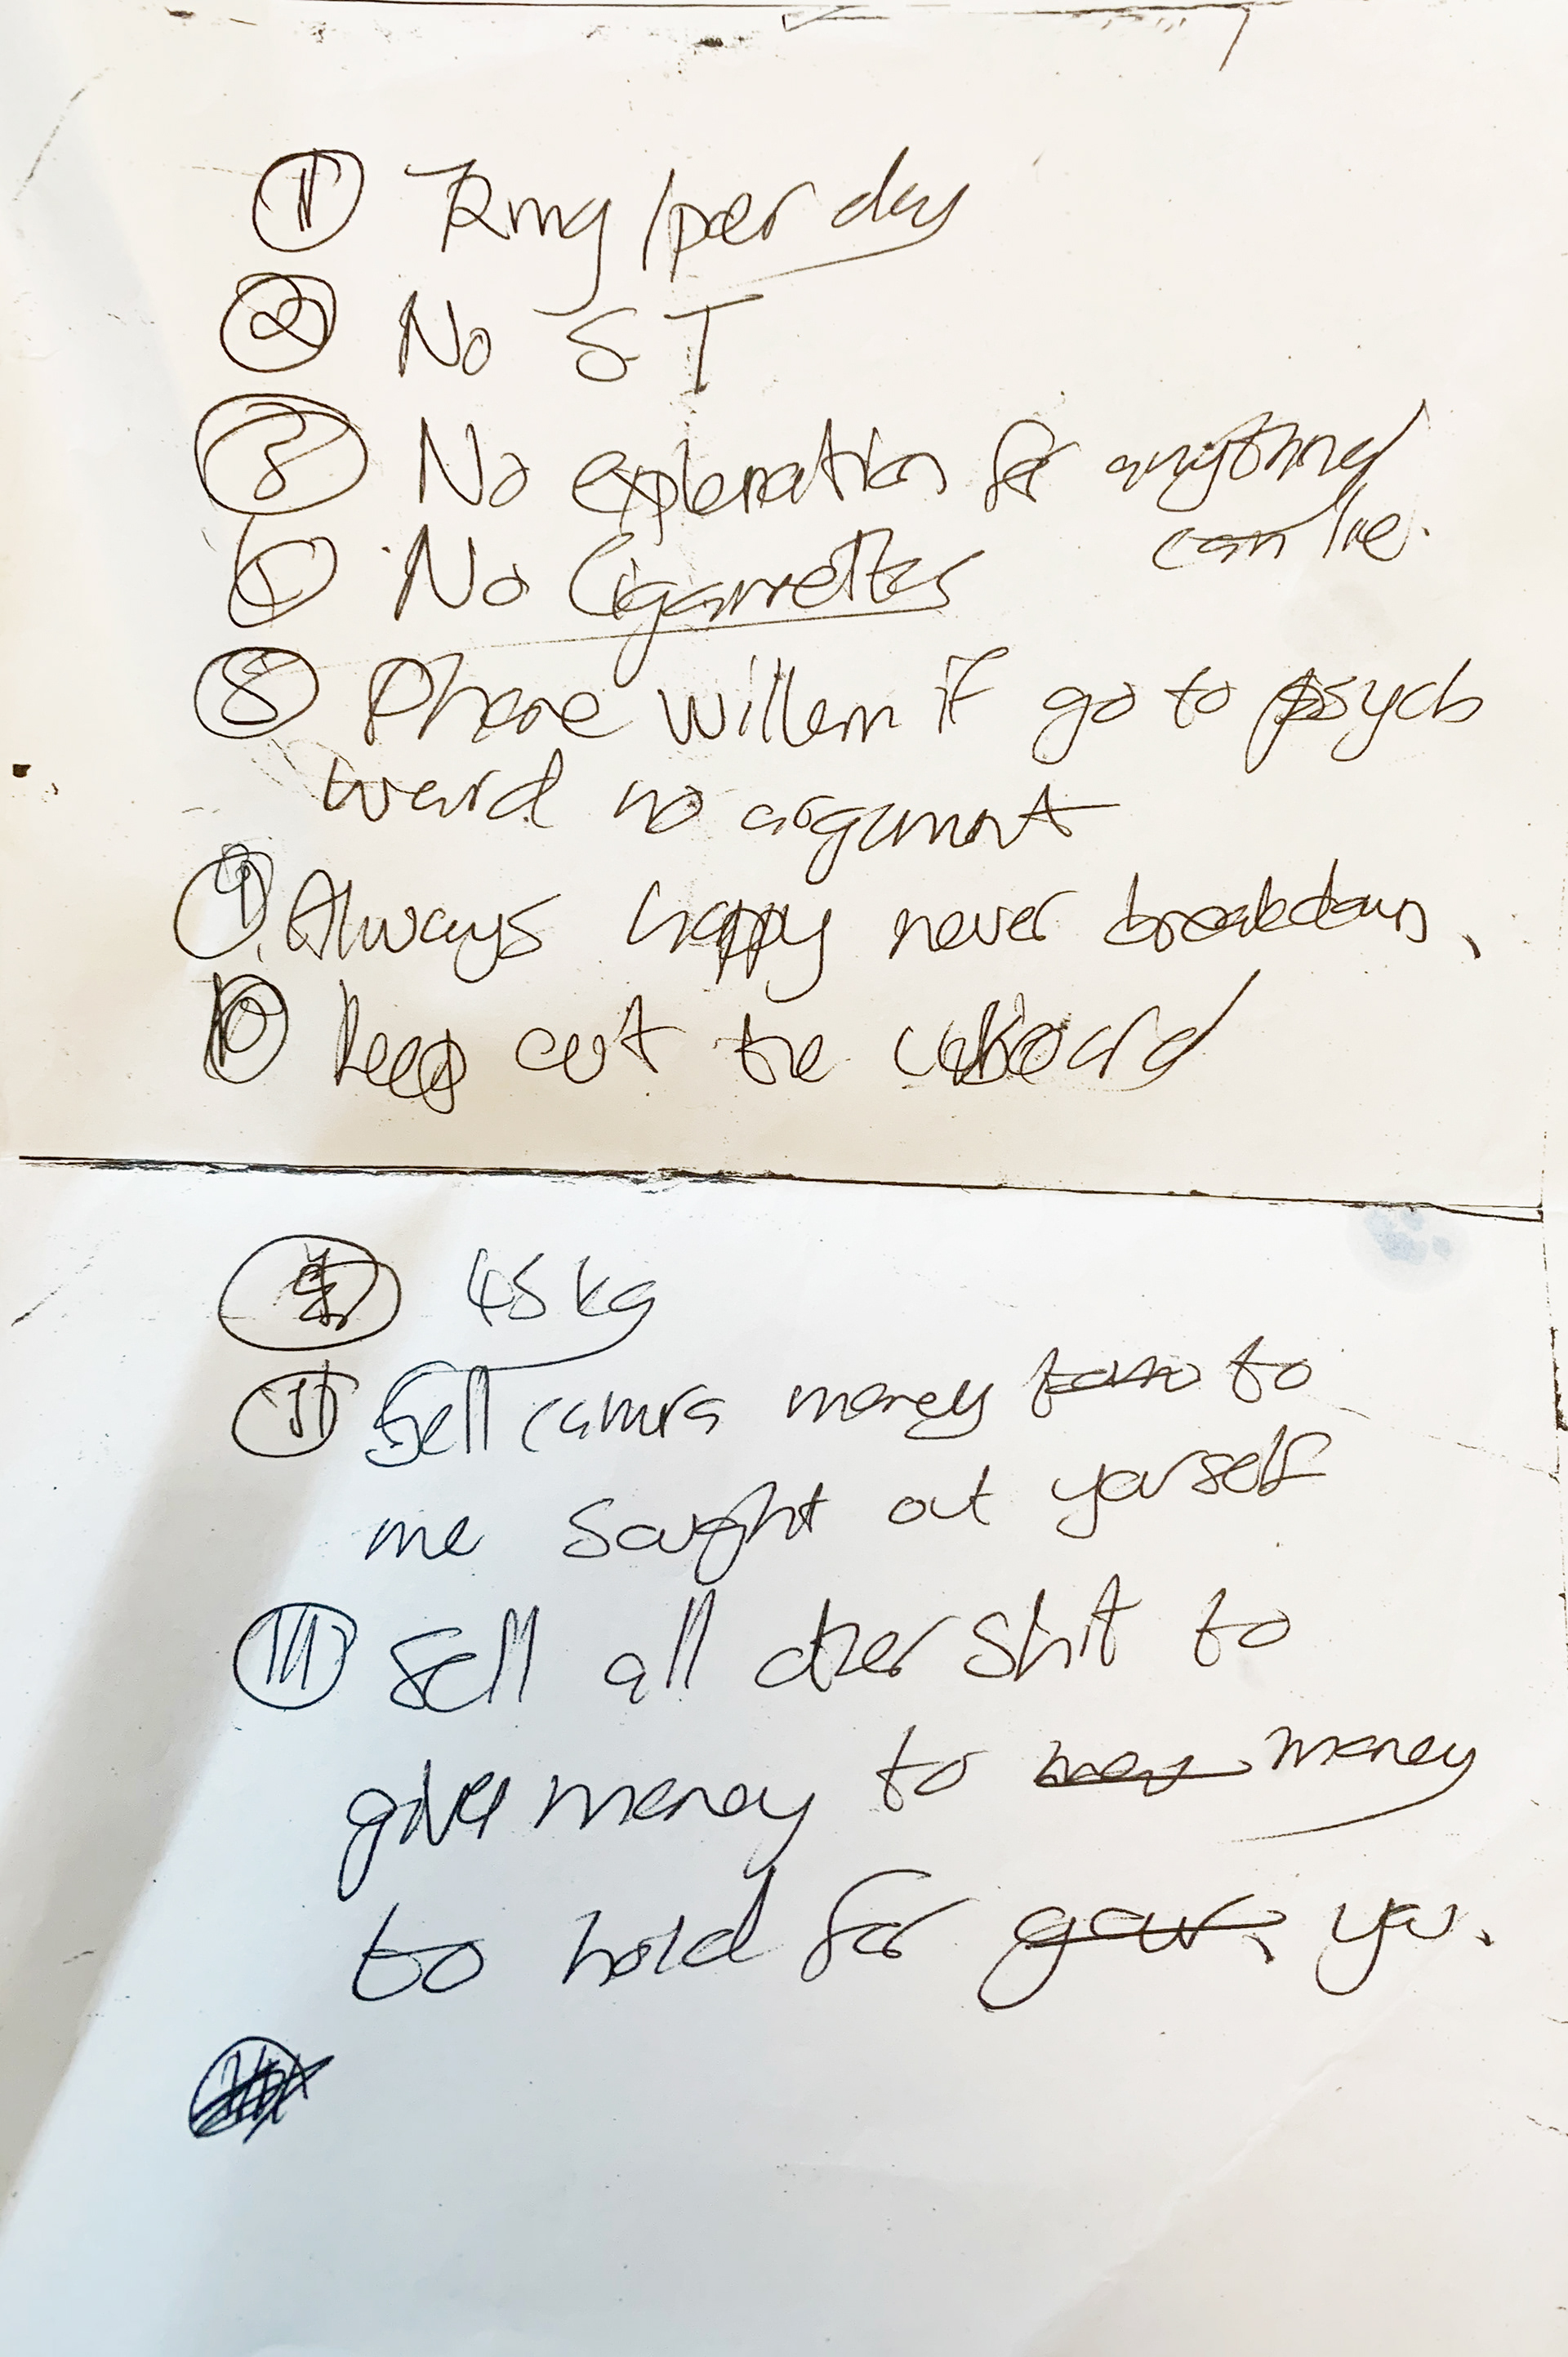 ① 72mg / per day
② No S T
③ No explenation for anything
can lie.
No Cigarrettes
⑧ Phone willem if go to psych
ward no argument
⑨ Always happy never breakdown.
⑩ keep out the
45kg
⑪ Sell camra money to
me sought out yourself
sell all other shit to
give money to money
to hold for you.